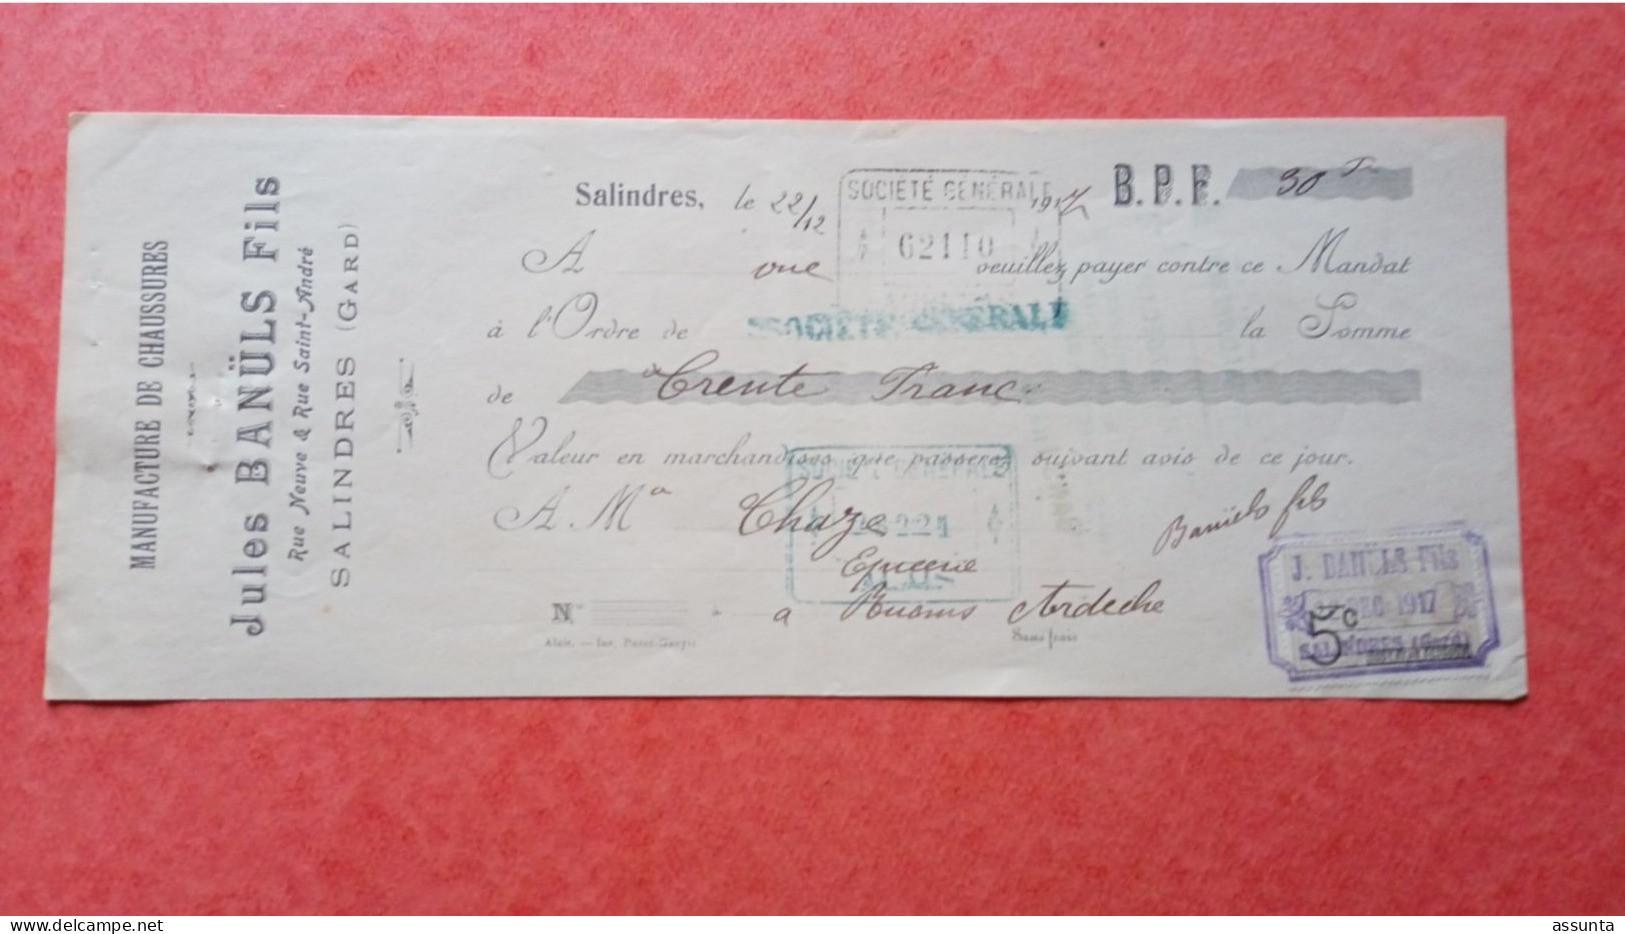 MANUFACTURE DE CHAUSSURES
Jules BANÜLS Fils
Rue Neuve & Rue Saint-André
SALINDRES (GARD)
Salindres, le 22/12 1917 B.P.F. 30 Fr
SOCIÉTÉ GÉNÉRALE
62110
A vue veuillez payer contre ce Mandat
à l'Ordre de SOCIÉTÉ GÉNÉRALE la Somme
de Trente Franc
Valeur en marchandises que passerez suivant avis de ce jour.
SOCIÉTÉ GÉNÉRALE
A. Ma Chaze
Banüls fils
Epicerie
à Ruoms Ardèche
N°
Sans frais
J. BANÜLS Fils
DEC 1917
5c
SALINDRES (Gard)
assunta